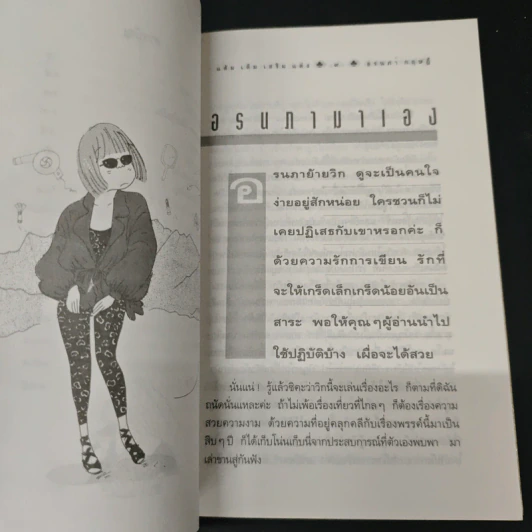 อรนภามาเอง
อรนภาย้ายวิก ดูจะเป็นคนใจ
ง่ายอยู่สักหน่อย ใครชวนก็ไม่
เคยปฏิเสธกับเขาหรอกค่ะ ก็
ด้วยความรักการเขียน รักที่
จะให้เกร็ดเล็กเกร็ดน้อยอันเป็น
สาระ พอให้คุณๆผู้อ่านนำไป
ใช้ปฏิบัติบ้าง เผื่อจะได้สวย
นั่นแน่! รู้แล้วซิคะว่าวิกนี้จะเล่นเรื่องอะไร ก็ตามที่ดิฉัน
ถนัดนั่นแหละค่ะ ถ้าไม่เพ้อเรื่องเที่ยวที่ไกลๆ ก็ต้องเรื่องความ
สวยความงาม ด้วยความที่อยู่คลุกคลีกับเรื่องพรรค์นี้มาเป็น
สิบๆปี ก็ได้เก็บโน่นเก็บนี่จากประสบการณ์ที่ตัวเองพบพา มา
เล่าขานสู่กันฟัง